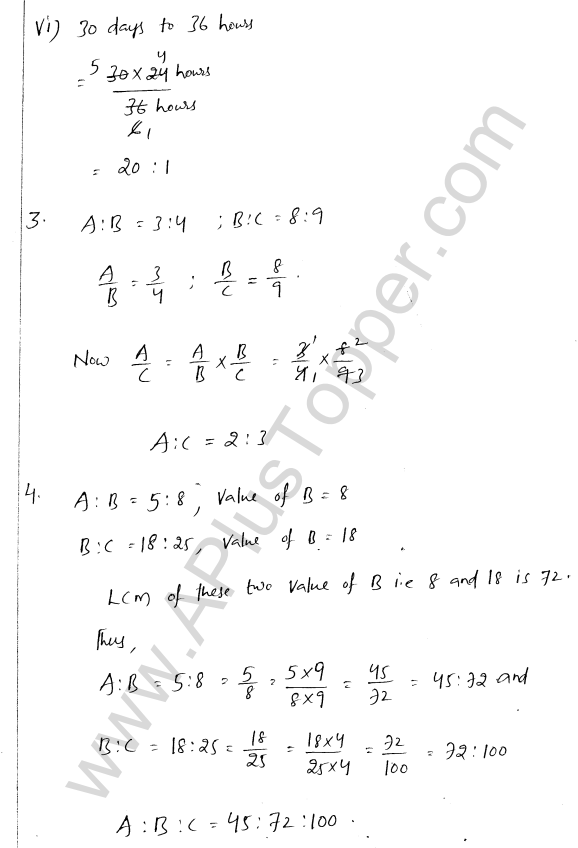 vi) 30 days to 36 hours
= 5 30 × 24 4 hours
36 hours
6 1
= 20 : 1
3. A:B = 3:4 ; B:C = 8:9
A/B = 3/4 ; B/C = 8/9 .
Now A/C = A/B × B/C = 3 1/4 1 × 8 2/9 3
A:C = 2:3
4. A:B = 5:8, Value of B = 8
B:C = 18:25, Value of B = 18
LCM of these two value of B i.e 8 and 18 is 72.
Thus,
A:B = 5:8 = 5/8 = 5×9/8×9 = 45/72 = 45:72 and
B:C = 18:25 = 18/25 = 18×4/25×4 = 72/100 = 72:100
A:B:C = 45:72:100 .
www.APlusTopper.com